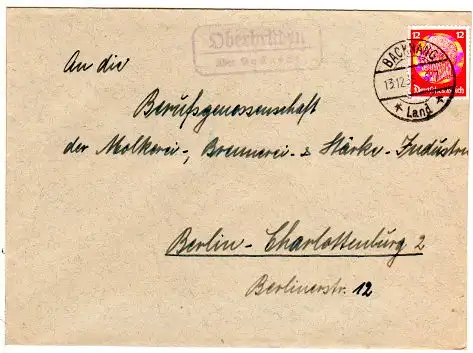 12 12
Deutsches Reich
BACKNANG
13.12.3
* Land *
Oberbrüden
über Backnang
An die
Berufsgenossenschaft
der Molkerei-, Brennerei- & Stärke-Industrie
Berlin-Charlottenburg 2
Berlinerstr. 12